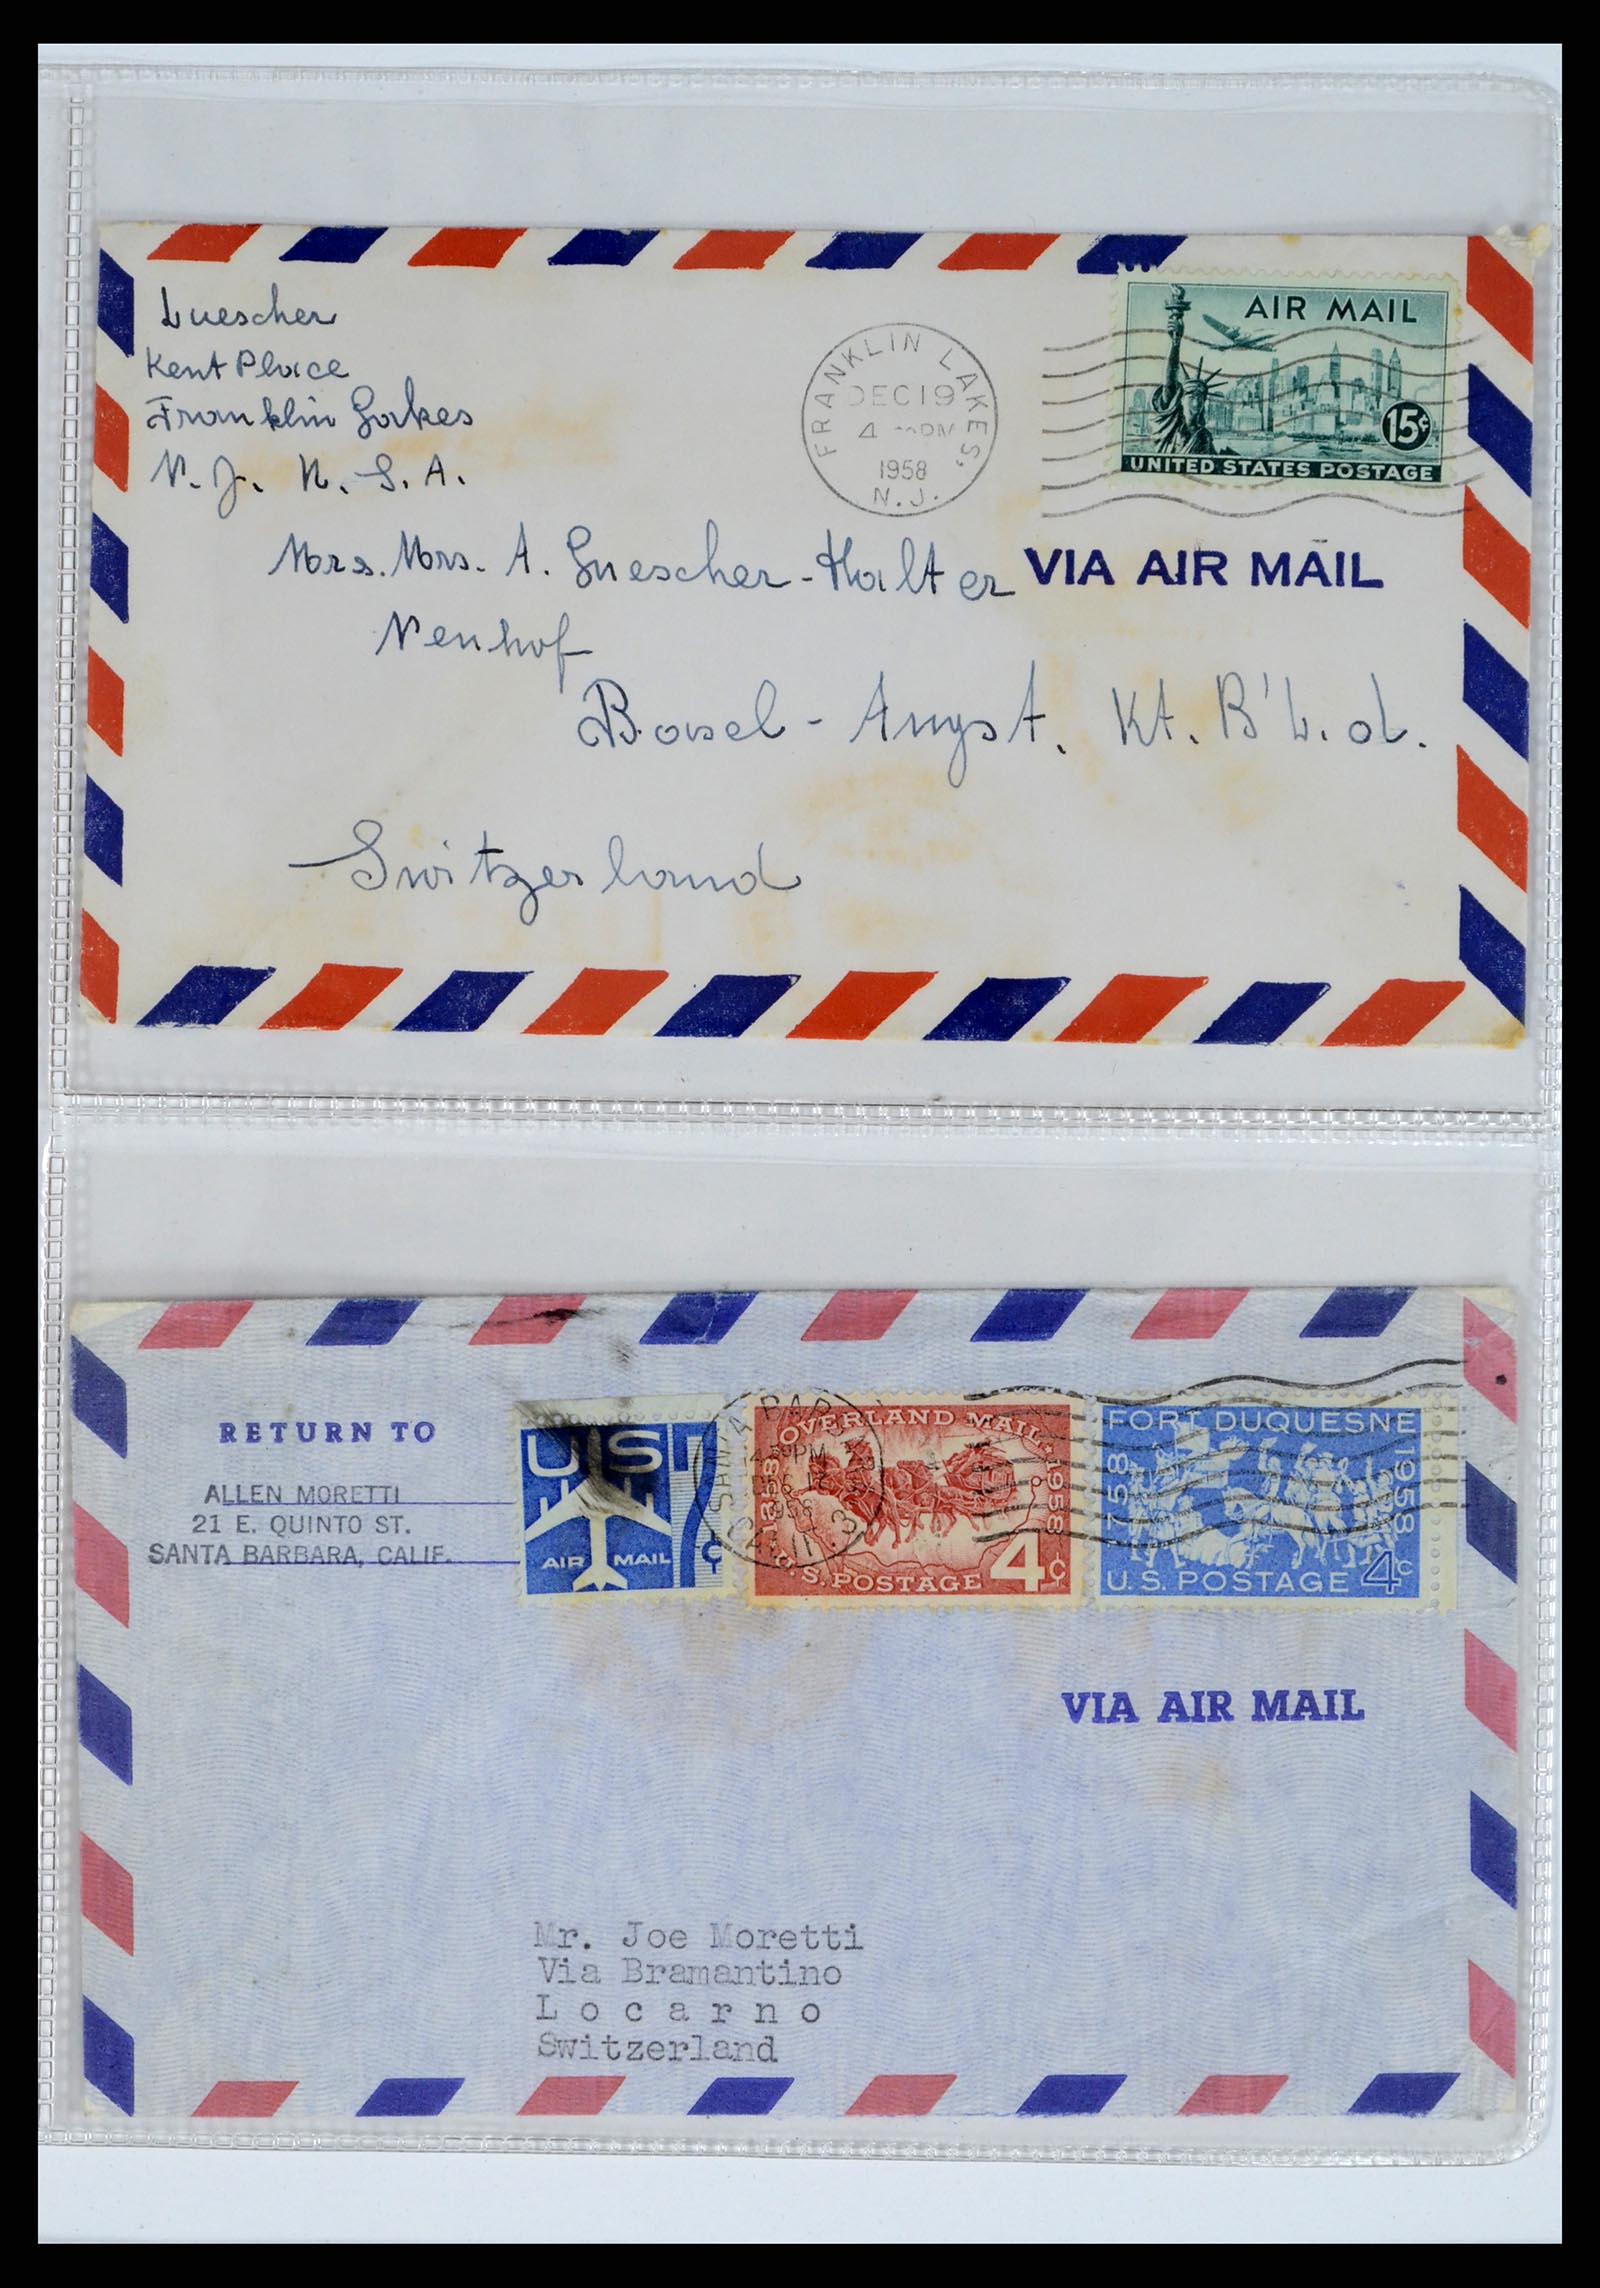 Luescher
Kent Place
Franklin Lakes
N.J. U.S.A.
FRANKLIN LAKES,
DEC 19
4 PM
1958
N.J.
AIR MAIL
15¢
UNITED STATES POSTAGE
Mrs. Mrs. A. Luescher-Halter
VIA AIR MAIL
Neuhof
Basel-Augst. Kt. B'L.d.
Switzerland
RETURN TO
ALLEN MORETTI
21 E. QUINTO ST.
SANTA BARBARA, CALIF.
US 7¢
AIR MAIL
SANTA BARBARA
PM
3
OVERLAND MAIL
1858 1958
U.S. POSTAGE 4¢
FORT DUQUESNE
1758 1958
U.S. POSTAGE 4¢
VIA AIR MAIL
Mr. Joe Moretti
Via Bramantino
Locarno
Switzerland